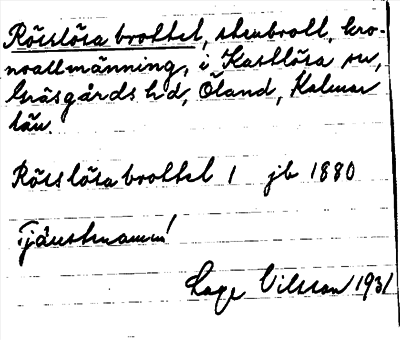 Rösslösa brottet, stenbrott, kro-
noallmänning, i Kastlösa sn,
Gräsgårds hd, Öland, Kalmar
län.
Rösslösa brottet 1 jb 1880
Tjänstenamn!
Lage Nilsson 1931